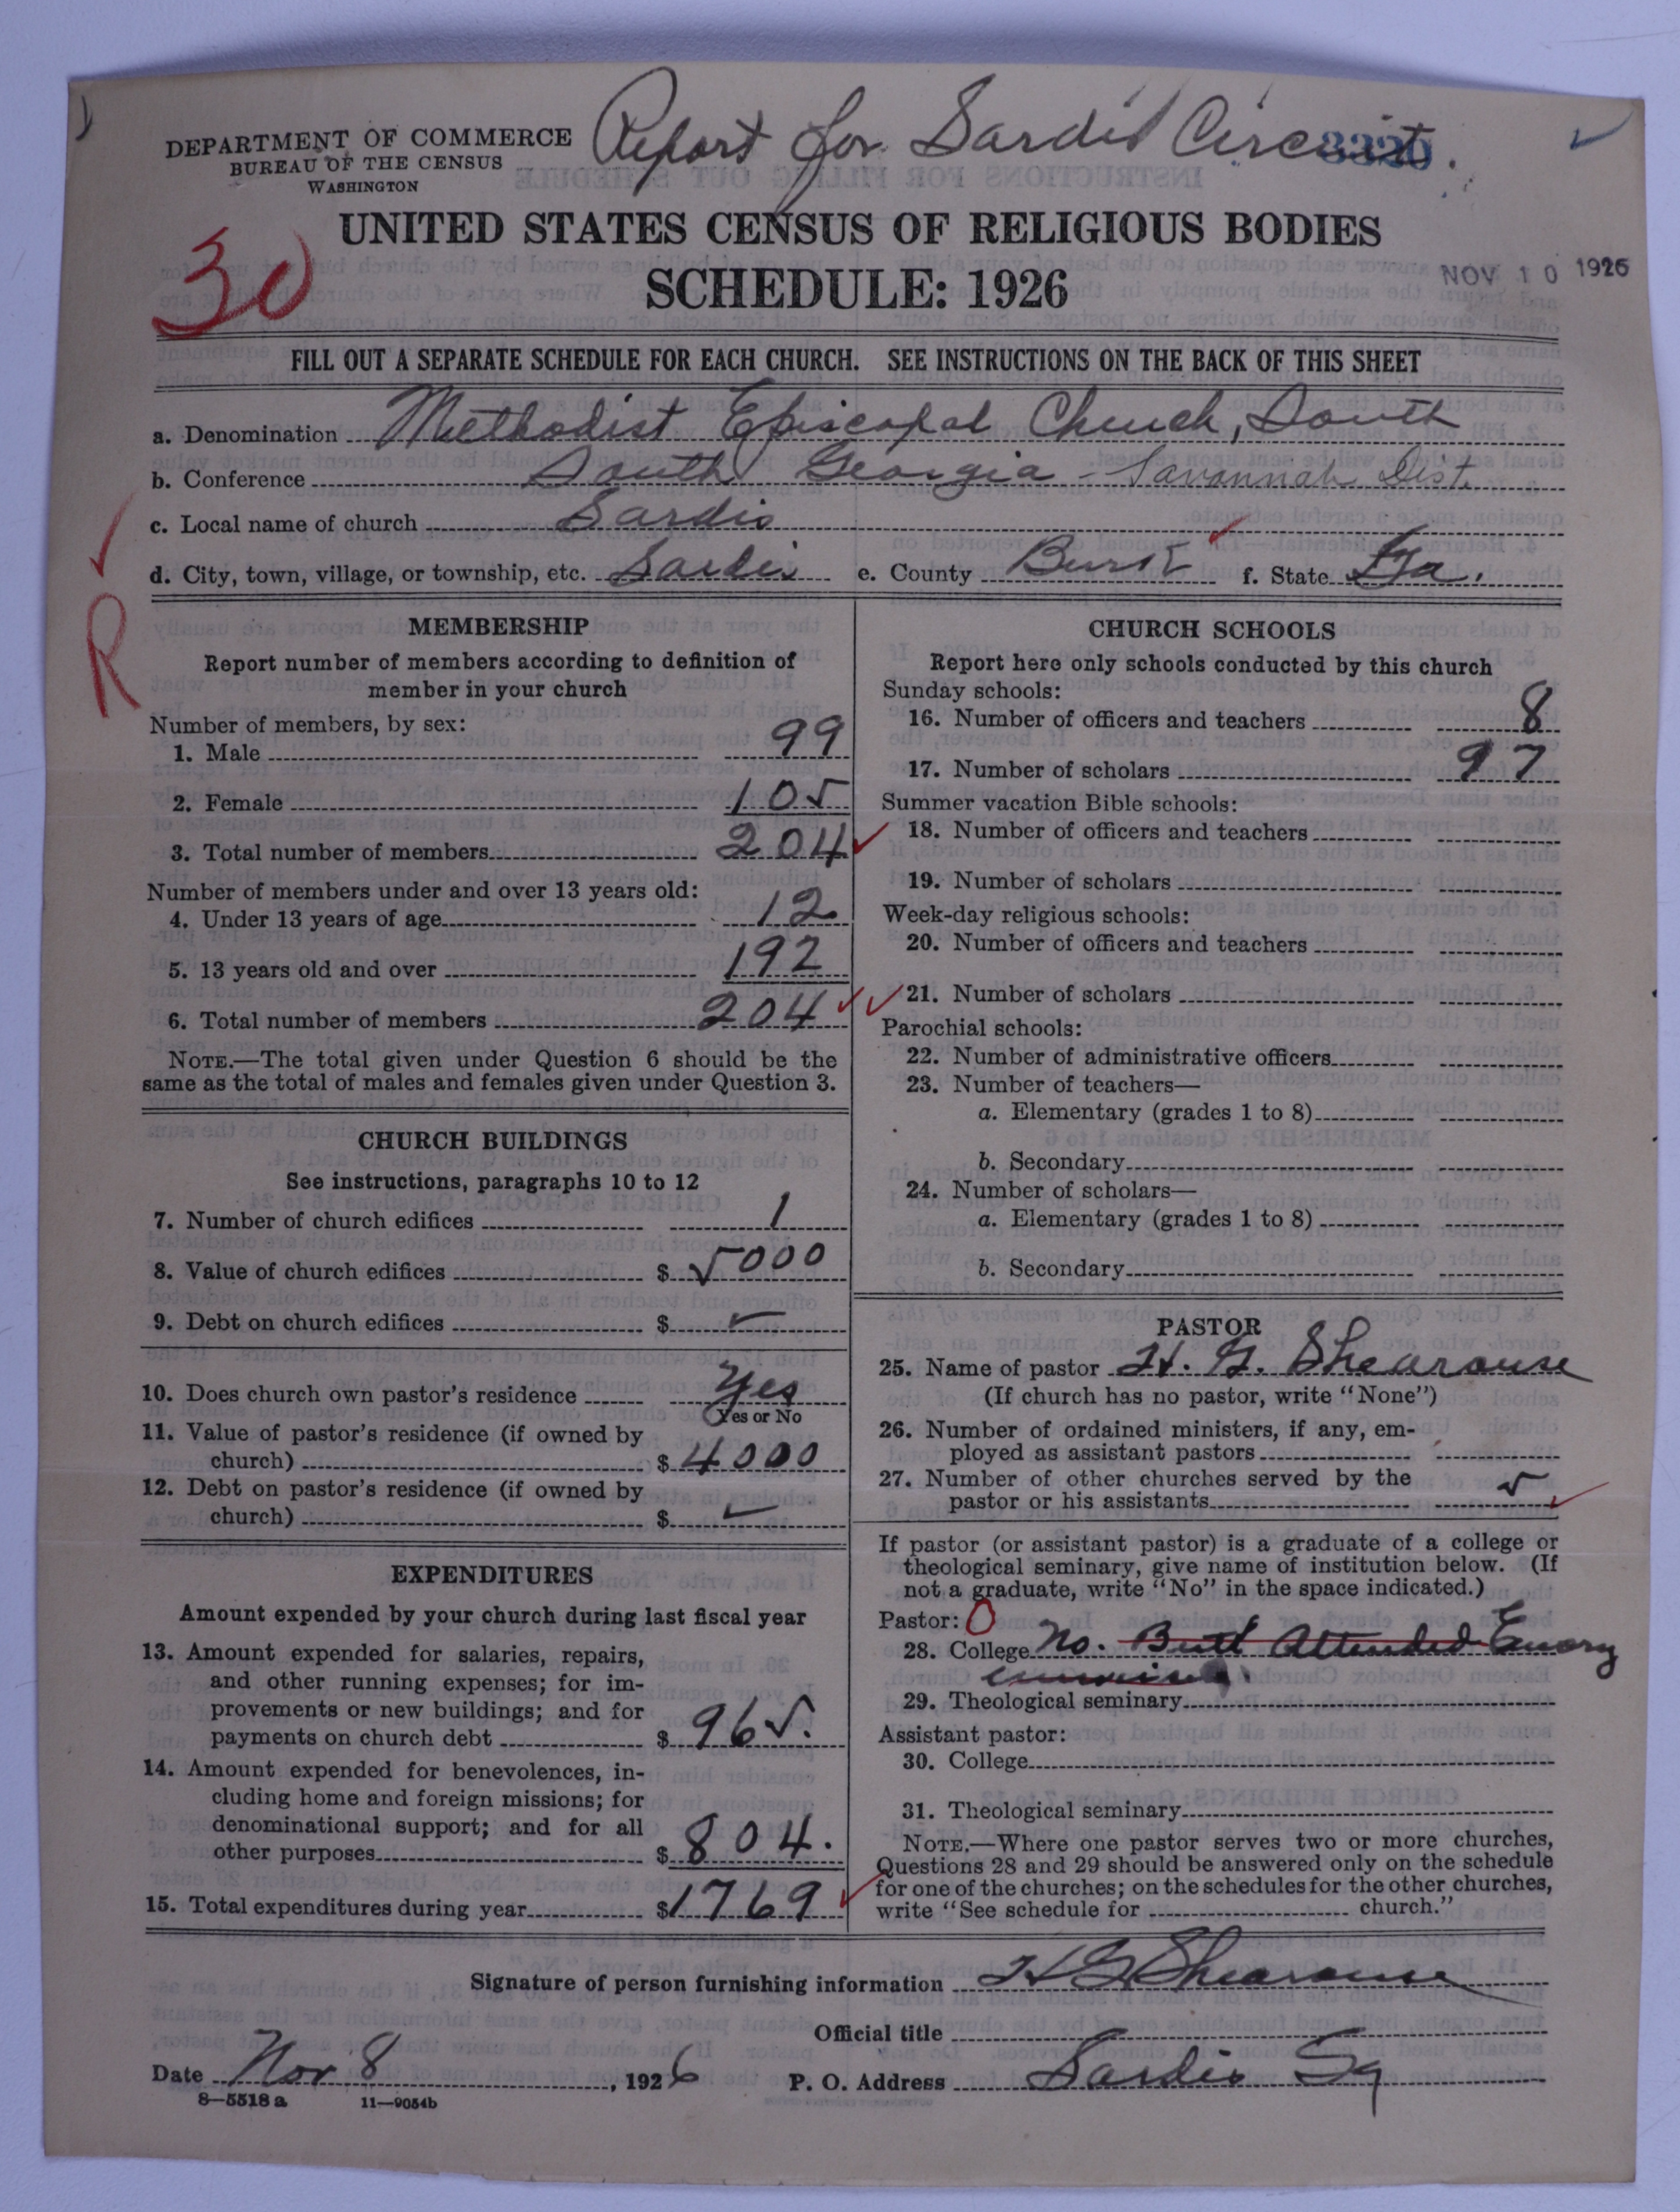 Report for Sardis Circuit.
3320
DEPARTMENT OF COMMERCE
BUREAU OF THE CENSUS
WASHINGTON
UNITED STATES CENSUS OF RELIGIOUS BODIES
SCHEDULE: 1926
NOV 10 1926
30
FILL OUT A SEPARATE SCHEDULE FOR EACH CHURCH. SEE INSTRUCTIONS ON THE BACK OF THIS SHEET
a. Denomination Methodist Episcopal Church, South
b. Conference South Georgia - Savannah Dist.
c. Local name of church Sardis
d. City, town, village, or township, etc. Sardis e. County Burk f. State Ga.
R
MEMBERSHIP
Report number of members according to definition of
member in your church
Number of members, by sex:
1. Male 99
2. Female 105
3. Total number of members 204
Number of members under and over 13 years old:
4. Under 13 years of age 12
5. 13 years old and over 192
6. Total number of members 204
NOTE.—The total given under Question 6 should be the
same as the total of males and females given under Question 3.
CHURCH BUILDINGS
See instructions, paragraphs 10 to 12
7. Number of church edifices 1
8. Value of church edifices $ 5000
9. Debt on church edifices $
10. Does church own pastor's residence Yes
Yes or No
11. Value of pastor's residence (if owned by
church) $ 4000
12. Debt on pastor's residence (if owned by
church) $
EXPENDITURES
Amount expended by your church during last fiscal year
13. Amount expended for salaries, repairs,
and other running expenses; for im-
provements or new buildings; and for
payments on church debt $ 965.
14. Amount expended for benevolences, in-
cluding home and foreign missions; for
denominational support; and for all
other purposes $ 804.
15. Total expenditures during year $1769
CHURCH SCHOOLS
Report here only schools conducted by this church
Sunday schools:
16. Number of officers and teachers 8
17. Number of scholars 97
Summer vacation Bible schools:
18. Number of officers and teachers
19. Number of scholars
Week-day religious schools:
20. Number of officers and teachers
21. Number of scholars
Parochial schools:
22. Number of administrative officers
23. Number of teachers—
a. Elementary (grades 1 to 8)
b. Secondary
24. Number of scholars—
a. Elementary (grades 1 to 8)
b. Secondary
PASTOR
25. Name of pastor H. G. Shearouse
(If church has no pastor, write "None")
26. Number of ordained ministers, if any, em-
ployed as assistant pastors
27. Number of other churches served by the
pastor or his assistants 5
If pastor (or assistant pastor) is a graduate of a college or
theological seminary, give name of institution below. (If
not a graduate, write "No" in the space indicated.)
Pastor: O
28. College No. But Attended Emory
29. Theological seminary
Assistant pastor:
30. College
31. Theological seminary
NOTE.—Where one pastor serves two or more churches,
Questions 28 and 29 should be answered only on the schedule
for one of the churches; on the schedules for the other churches,
write "See schedule for church."
Signature of person furnishing information H G Shearouse
Official title
Date Nov 8, 1926 P. O. Address Sardis Ga
8—5518 a 11—9054b